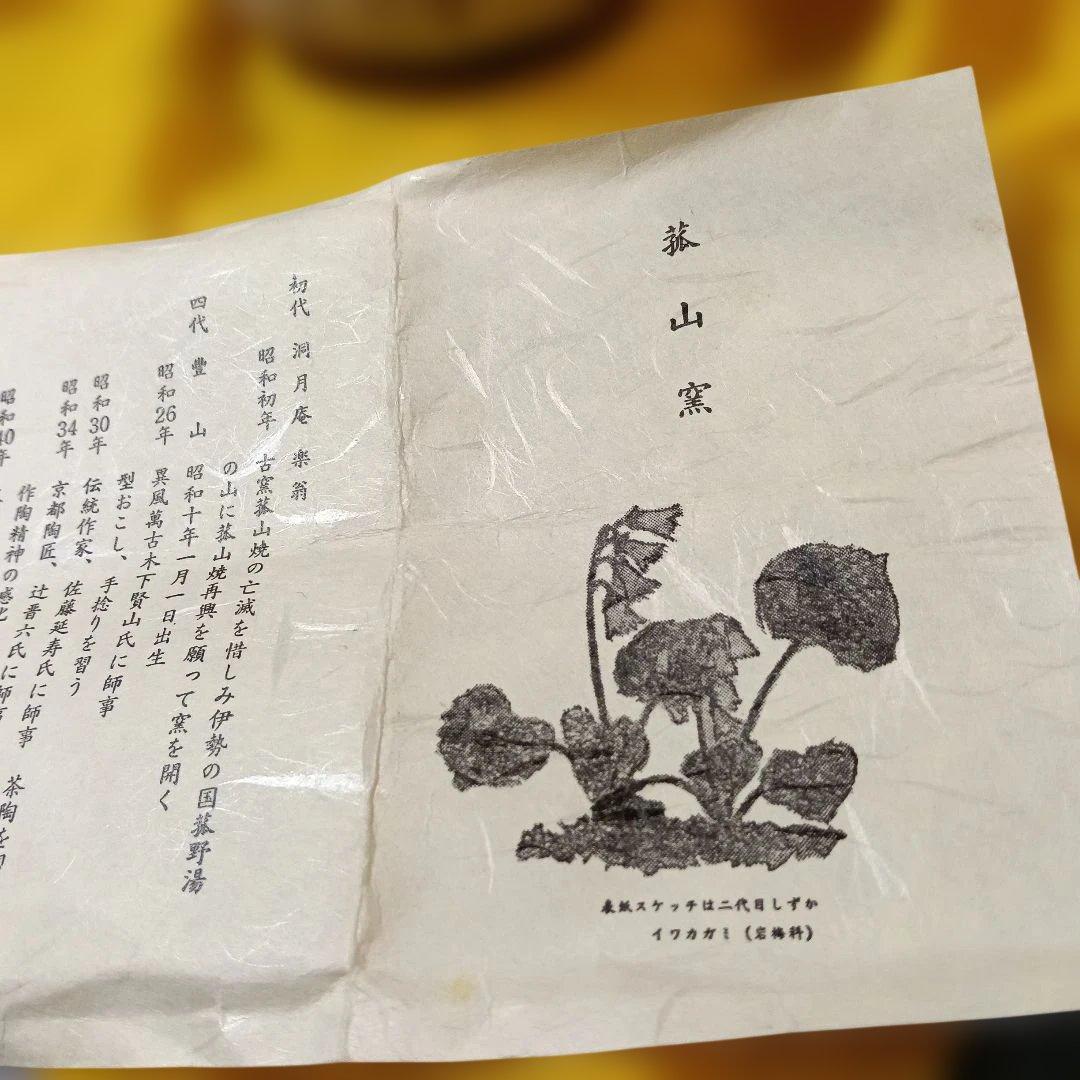 菰山窯
表紙スケッチは二代目しずか
イワカガミ(岩梅科)
初代 洞月庵 楽翁
昭和初年 古窯菰山焼の亡滅を惜しみ伊勢の国菰野湯
の山に菰山焼再興を願って窯を開く
四代 豊山 昭和十年一月一日出生
昭和26年 異風萬古木下賢山氏に師事
型おこし、手捻りを習う
昭和30年 伝統作家、佐藤延寿氏に師事
昭和34年 京都陶匠、辻晋六氏に師事
作陶精神の感化
昭和40年